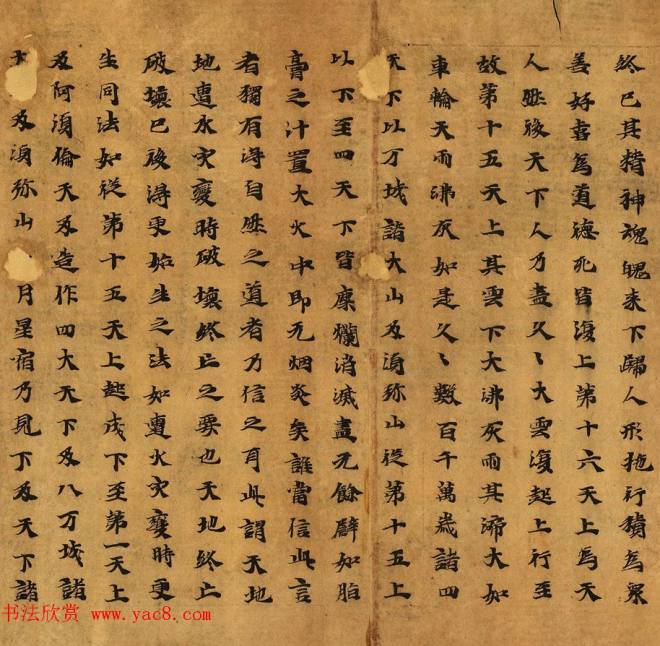 终已其精神魂魄来下歸人形施行積為眾
善好喜為道德死皆復上第十六天上為天
人毕後天下人乃盡久〻大雲復起上行至
故第十五天上其雲下大沸灰雨其渧大如
車輪天雨沸灰如是久〻數百千萬歲諸四
天下以万城諸大山及湏弥山從第十五上
以下至四天下皆糜爛消滅盡无餘辟如脂
膏之汁置大火中即无烟炎矣誰當信此言
者獨有得自然之道者乃信之耳此謂天地
地遭水灾變時破壞終亡之要也天地終亡
破壞已後得更始生之法如遭火灾變時更
生同法如從第十五天上起成下至第一天上
及阿湏倫天及造作四大天下及八万城諸
及湏弥山月星宿乃見下及天下諸
书法欣赏 www.yac8.com